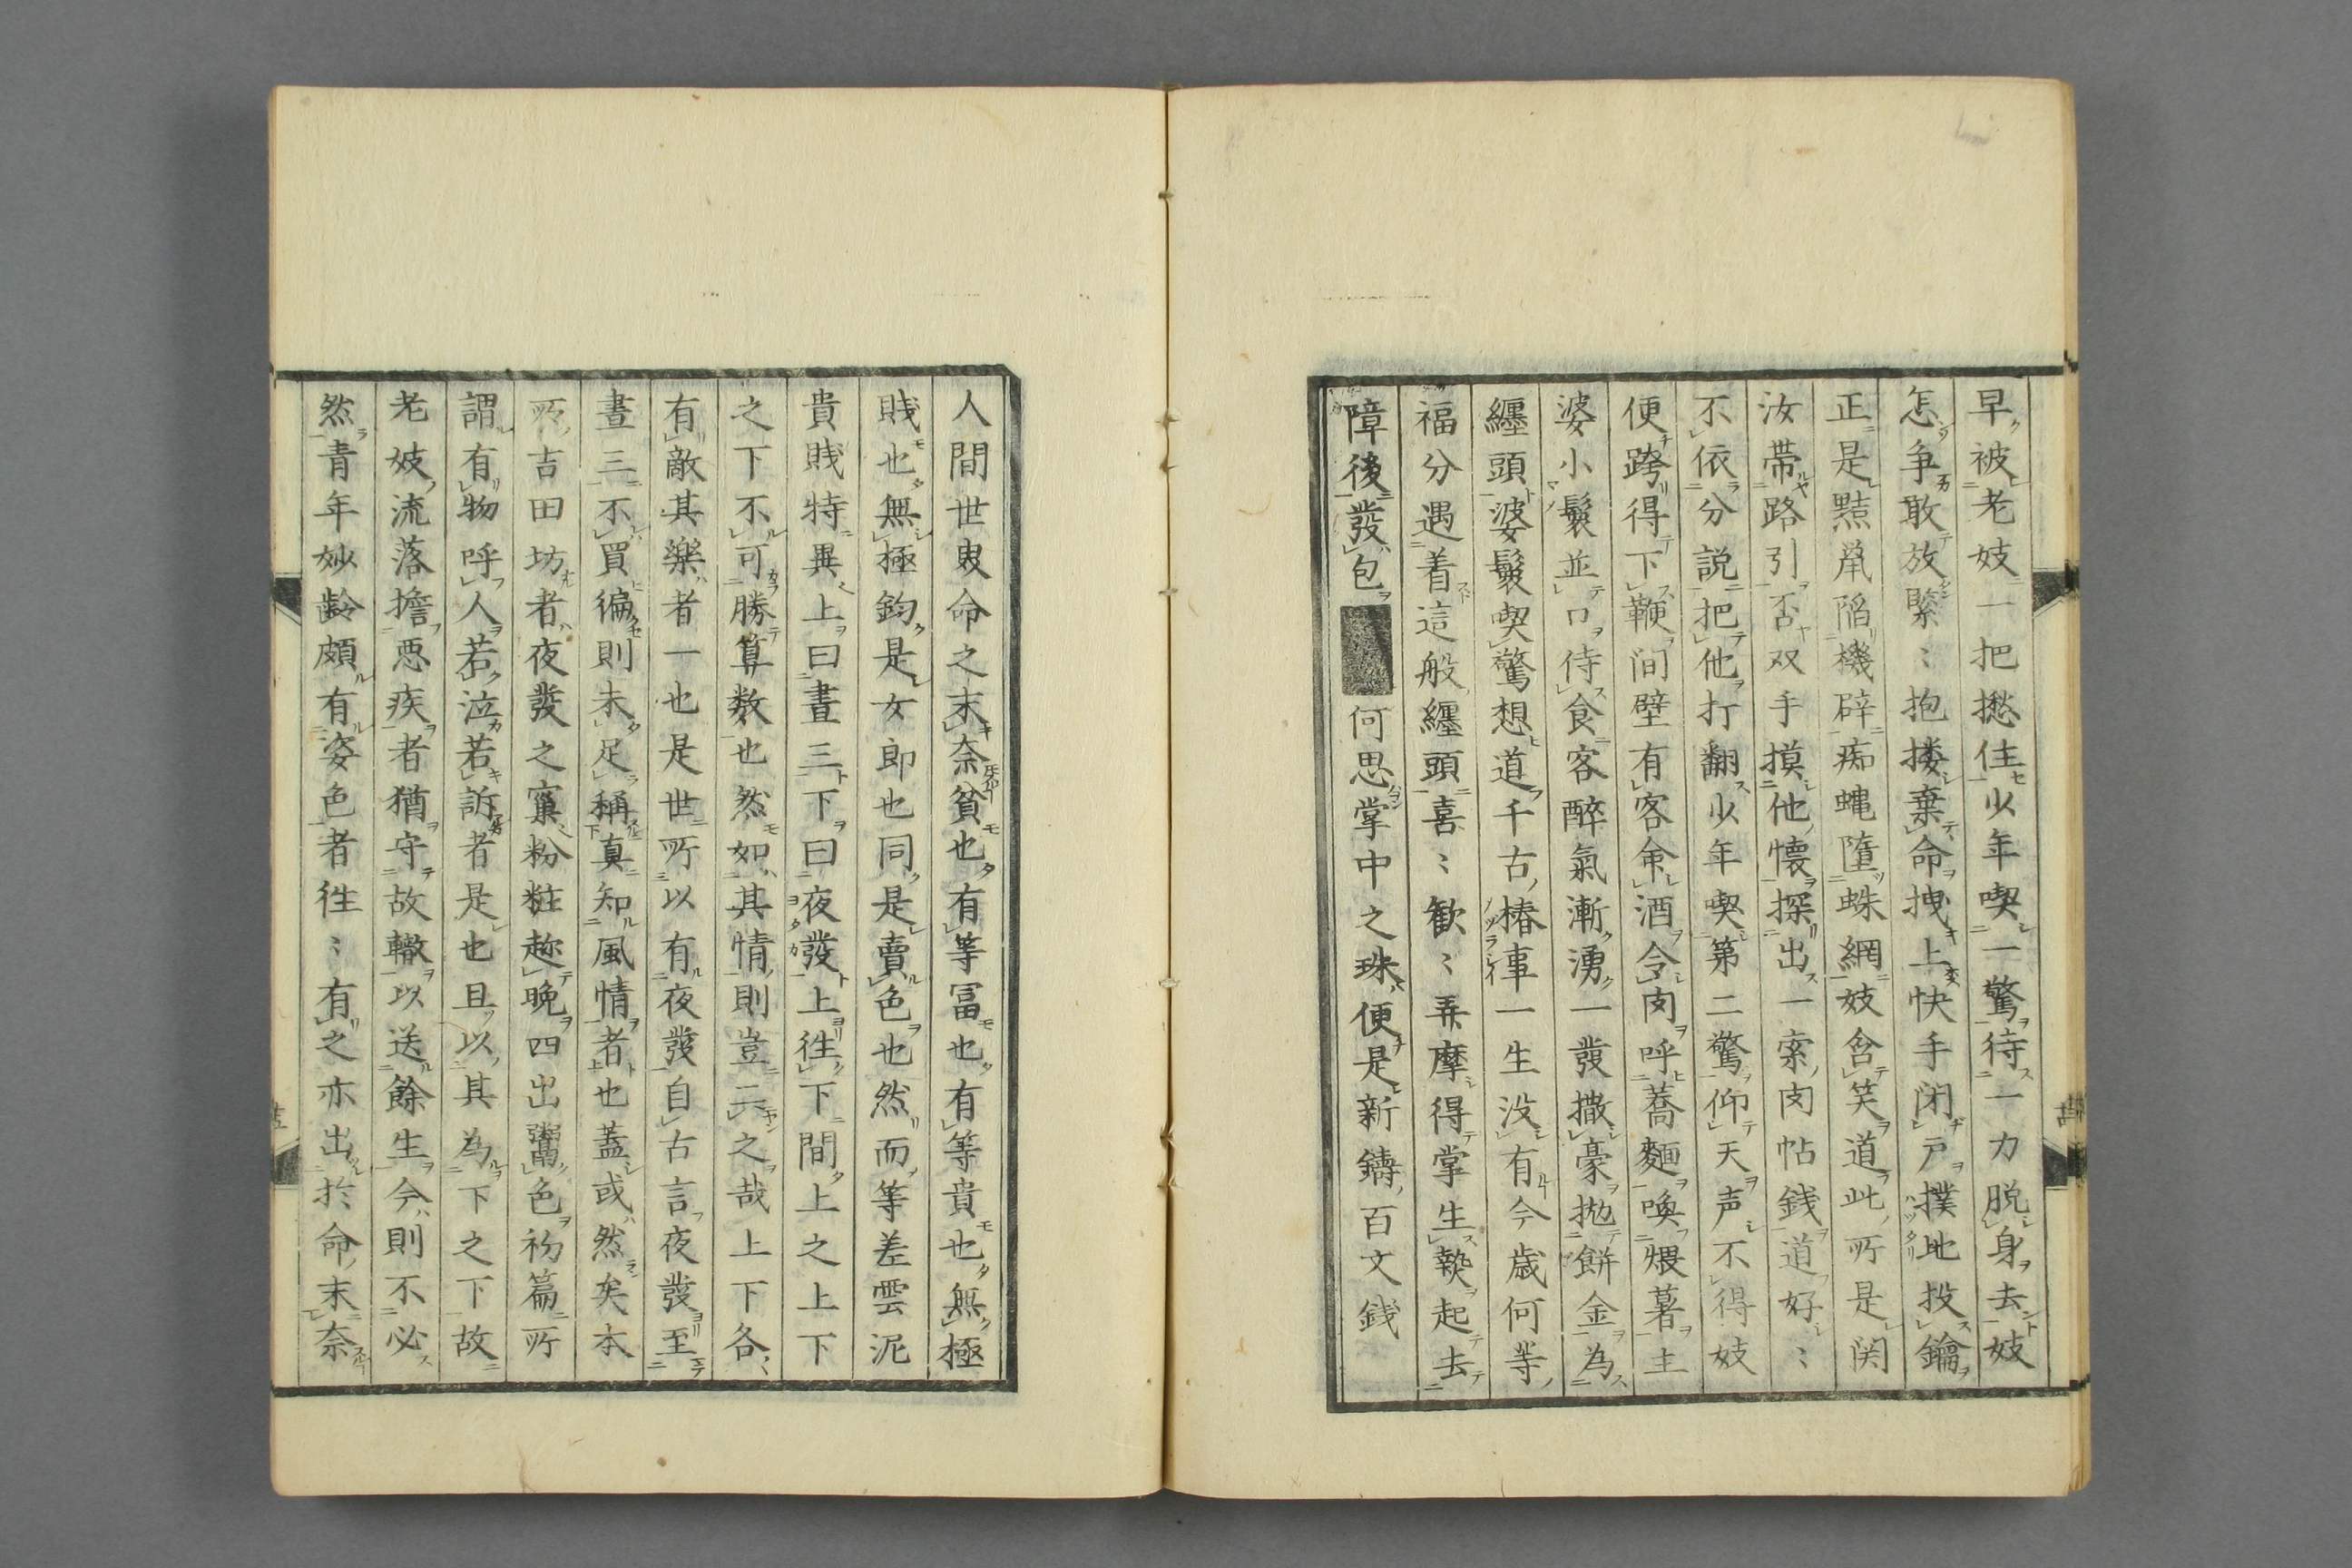 早被老妓一把撚住少年喫一驚待一力脱身去妓
怎争敢放緊〻抱摟棄命拽上快手閉戸撲地投鑰
正是黠鼠陥機辟痴蠅墮蛛網妓含笑道此所是関
汝帯路引否双手摸他懐探出一索肉帖銭道好〻
不依分説把他打翻少年喫第二驚仰天声不得妓
便跨得下鞭間壁有客命酒令肉呼蕎麺喚煨薯主
婆小鬟並口侍食客醉氣漸湧一發撒豪抛餅金為
纏頭婆鬟喫驚想道千古椿事一生没有今歳何等
福分遇着這般纏頭喜〻歓〻弄摩得掌生𤍠起去
障後發包 何思掌中之珠便是新鑄百文銭
人間世臾命之末奈貧也有等冨也有等貴也無極
賎也無極鈞是女郎也同是賣色也然而等差雲泥
貴賎特異上曰晝三下曰夜發上徃下間上之上下
之下不可勝算数也然如其情則豈二之哉上下各
有敵其楽者一也是世所以有夜發自古言夜發至
晝三不買徧則未足稱真知風情者也蓋或然矣本
所吉田坊者夜發之窠粉粧趂晩四出鬻色初篇所
謂有物呼人若泣若訴者是也且以其為下之下故
老妓流落擔悪疾者猶守故轍以送餘生今則不必
然青年妙齢頗有姿色者徃〻有之亦出於命末奈